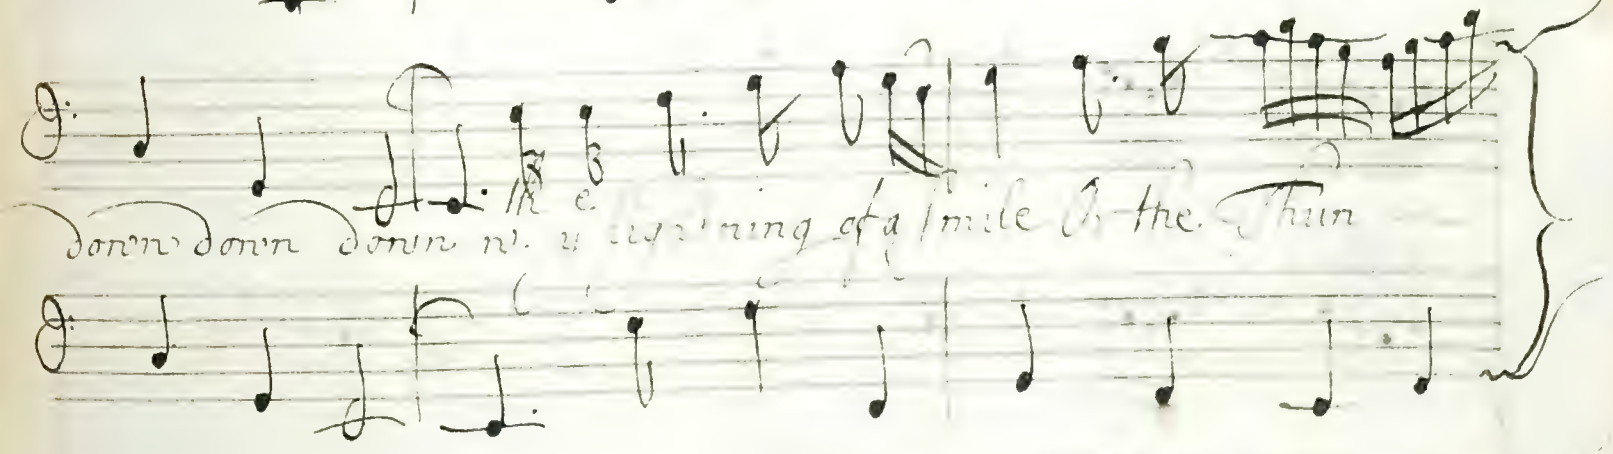 down down down ning of a smile Or the Thun